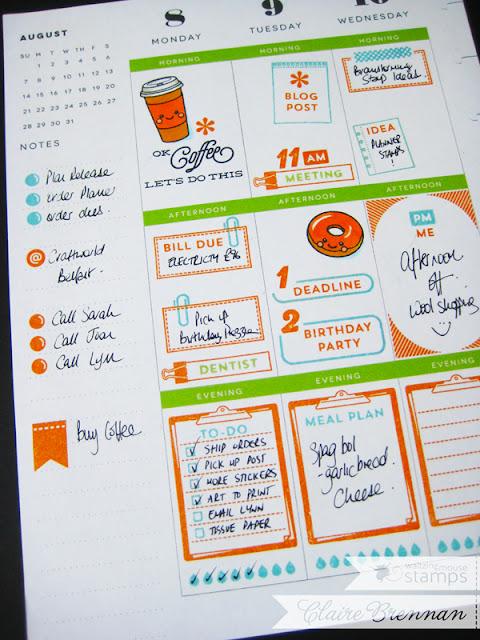 AUGUST
SU M T W T F S
1 2 3 4 5 6
7 8 9 10 11 12 13
14 15 16 17 18 19 20
21 22 23 24 25 26 27
28 29 30 31
NOTES
Plan Release
order Planner
order dies.
@ Craftworld
Belfast.
Call Sarah
Call Joan
Call Lynn
Buy Coffee
8
MONDAY
MORNING
OK Coffee
LET'S DO THIS
AFTERNOON
BILL DUE
ELECTRICITY
Pick up
birthday
DENTIST
EVENING
TO-DO
SHIP ORDERS
PICK UP POST
MORE STICKERS
ART TO PRINT
EMAIL LYNN
TISSUE PAPER
9
TUESDAY
MORNING
BLOG
POST
11 AM
MEETING
AFTERNOON
1 DEADLINE
2 BIRTHDAY
PARTY
EVENING
MEAL PLAN
Spag bol
-garlic bread.
Cheese.
10
WEDNESDAY
MORNING
Brainstorming
Stamp Ideas
IDEA
PLANNER
STAMPS
!
AFTERNOON
PM
ME
Afternoon
off.
Wool shopping
EVENING
waltzingmouse
stamps
Claire Brennan